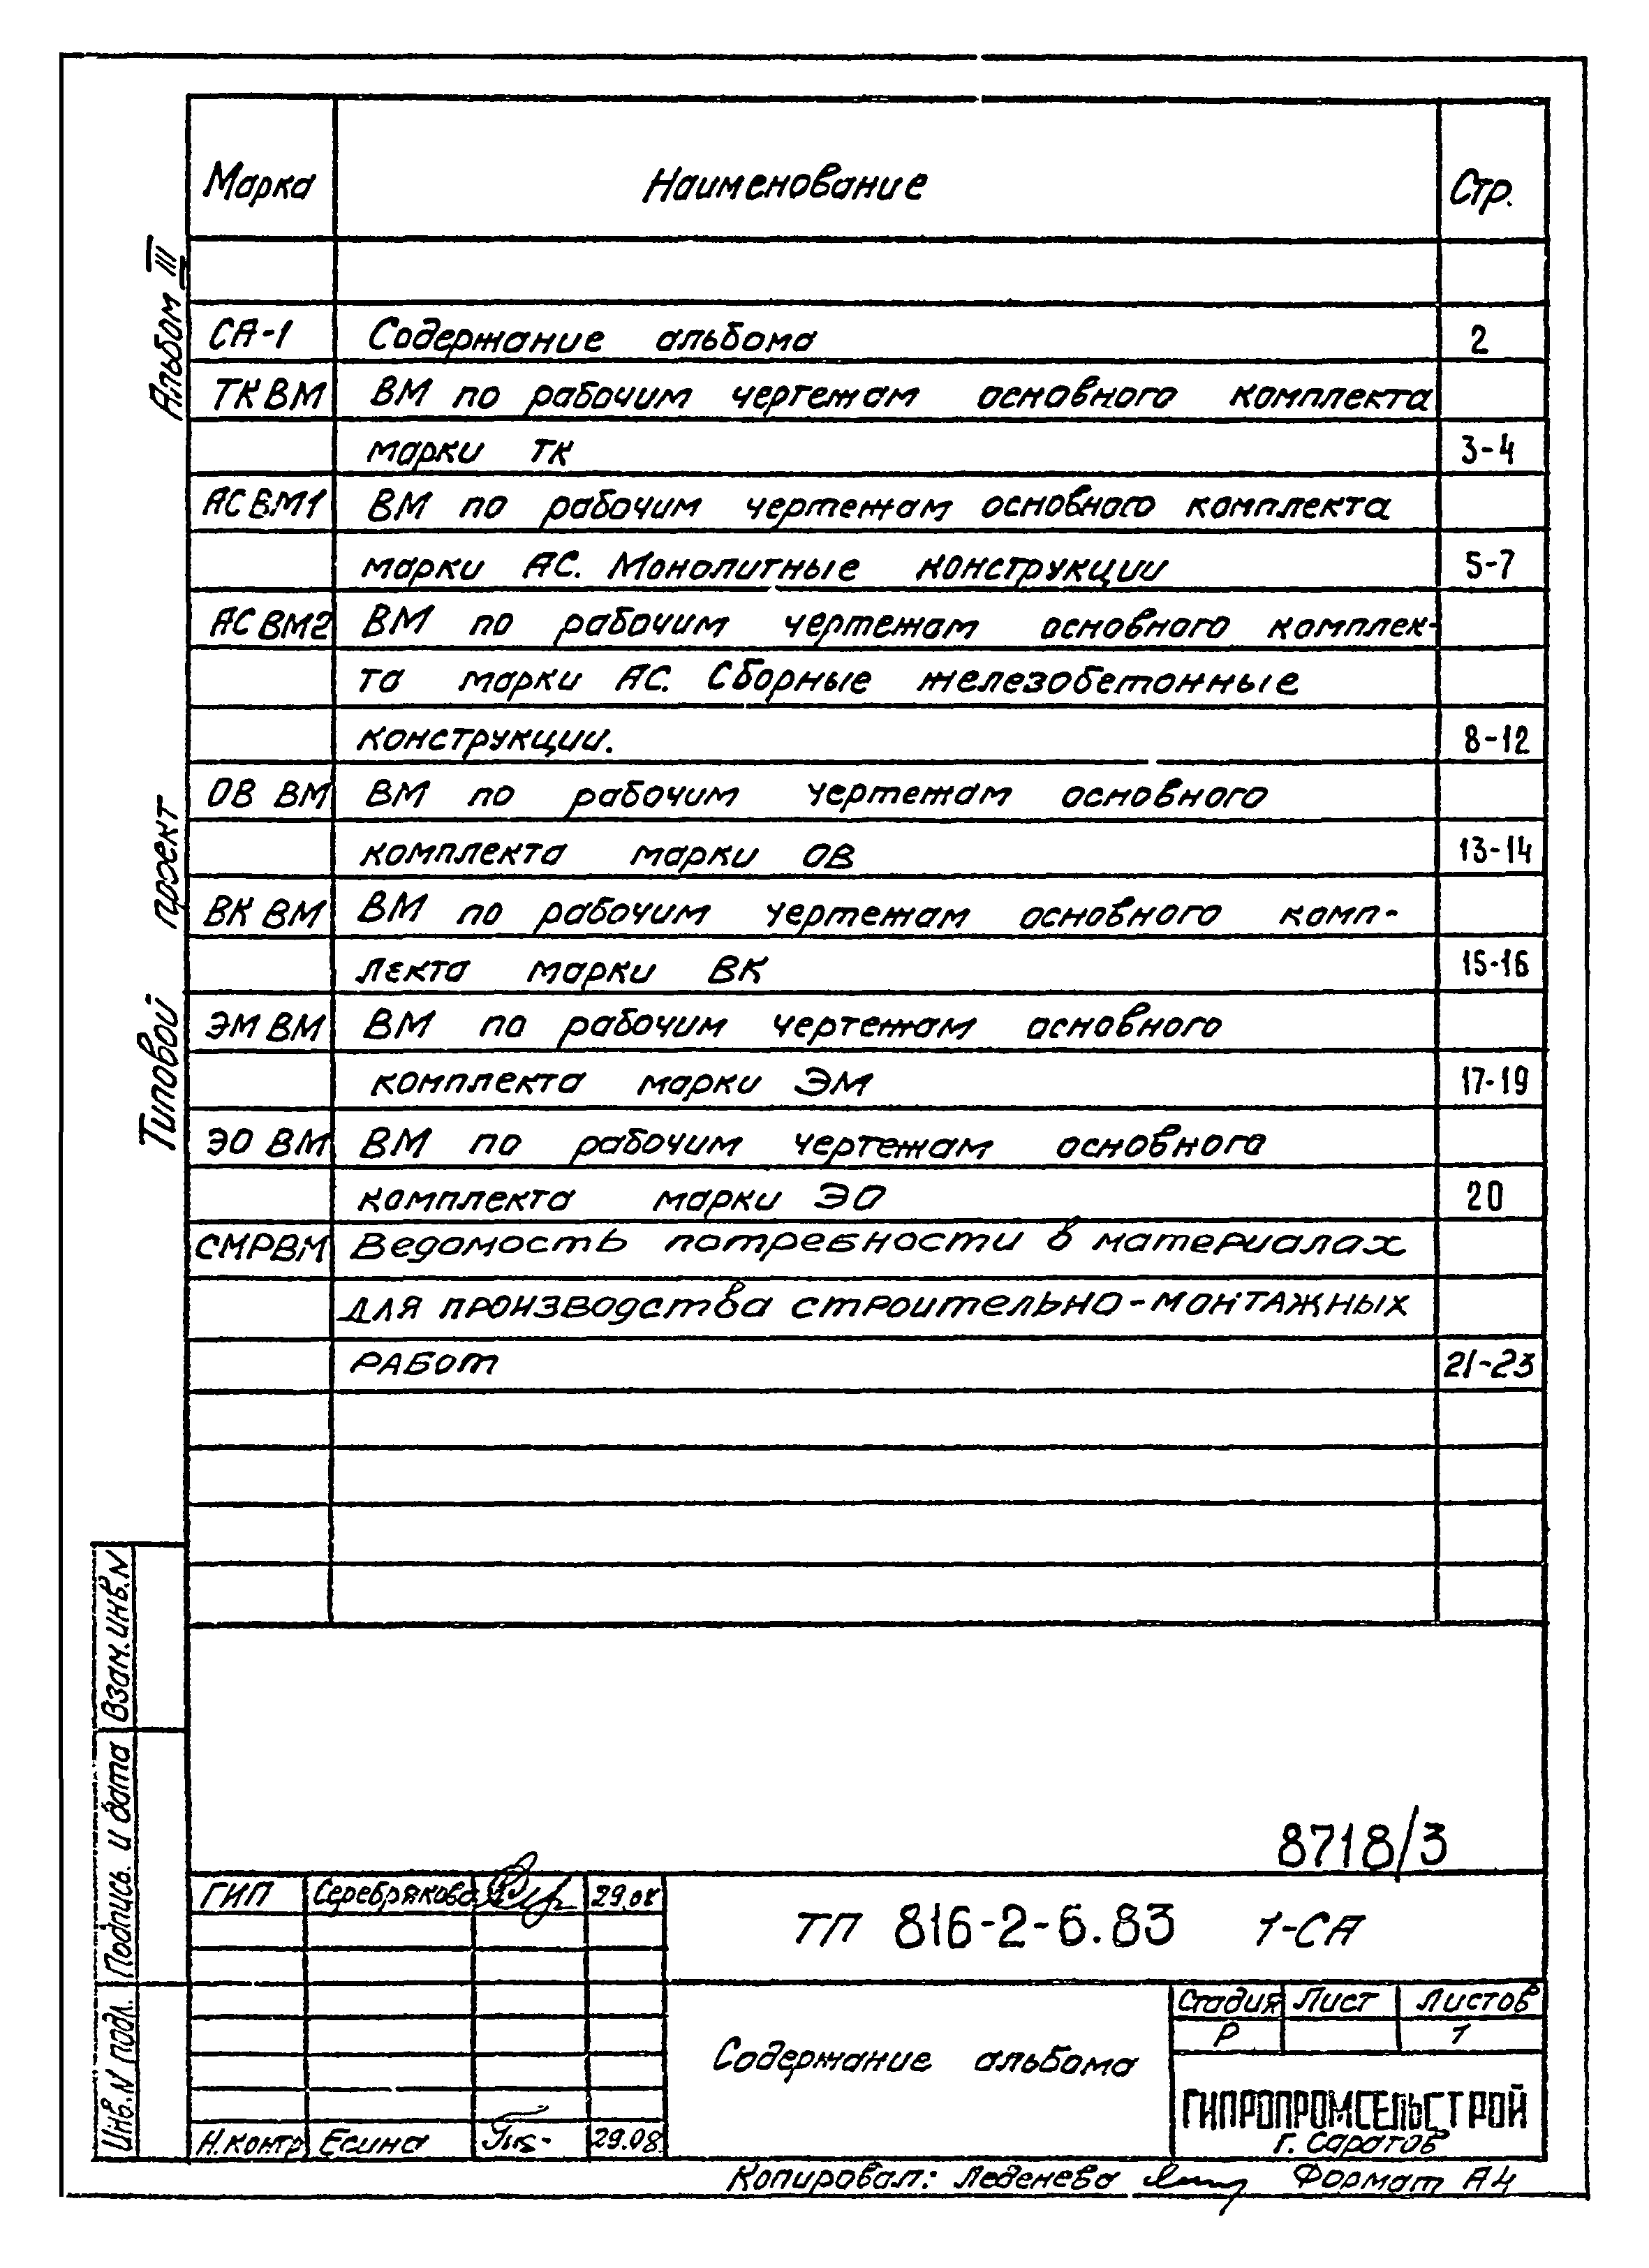 Марка Наименование Стр.
СА-1 Содержание альбома 2
ТК ВМ ВМ по рабочим чертежам основного комплекта
марки ТК 3-4
АС ВМ1 ВМ по рабочим чертежам основного комплекта
марки АС. Монолитные конструкции 5-7
АС ВМ2 ВМ по рабочим чертежам основного комплек-
та марки АС. Сборные железобетонные
конструкции. 8-12
ОВ ВМ ВМ по рабочим чертежам основного
комплекта марки ОВ 13-14
ВК ВМ ВМ по рабочим чертежам основного комп-
лекта марки ВК 15-16
ЭМ ВМ ВМ по рабочим чертежам основного
комплекта марки ЭМ 17-19
ЭО ВМ ВМ по рабочим чертежам основного
комплекта марки ЭО 20
СМРВМ Ведомость потребности в материалах
для производства строительно-монтажных
работ 21-23
Альбом III
Типовой проект
Взам.инв.N
Подпись. и дата
Инв.N подл.
8718/3
ГИП Серебрякова 29.08
ТП 816-2-6.83 1-СА
Стадия Лист Листов
Р 1
Содержание альбома
ГИПРОПРОМСЕЛЬСТРОЙ
г. Саратов
Н.контр Есина 29.08.
Копировал: Леденева Формат А4